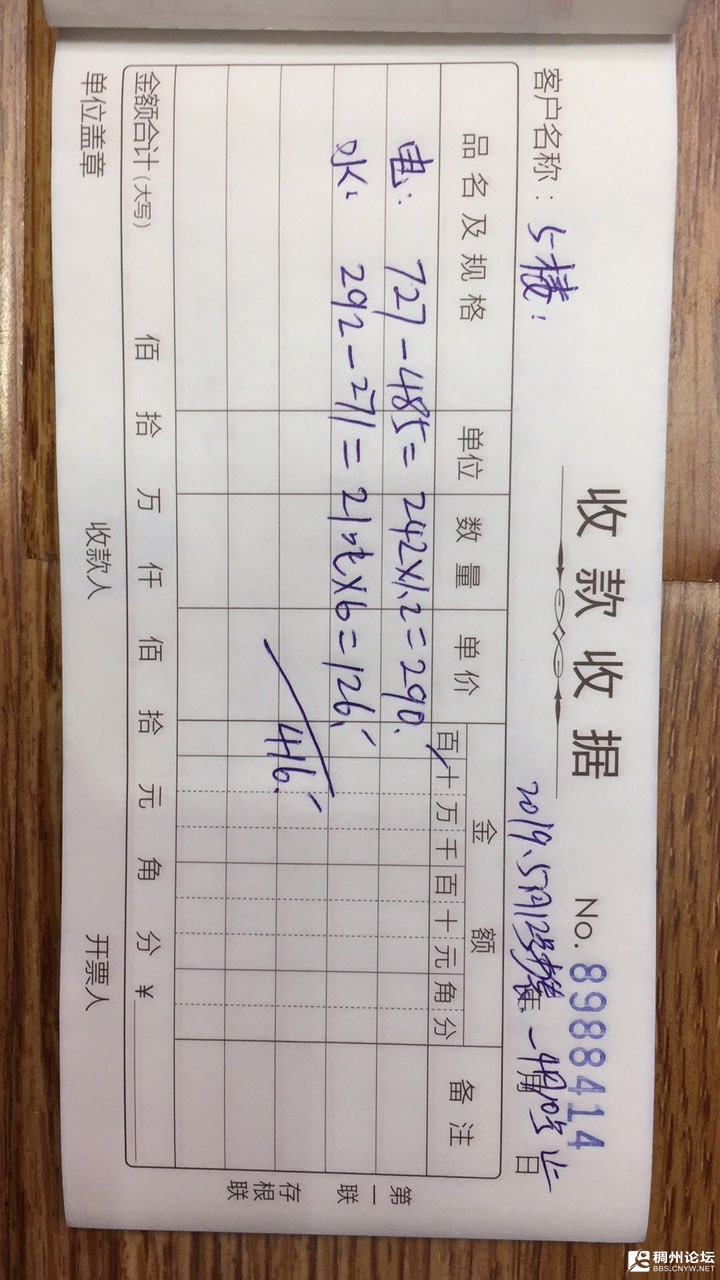 收款收据
No. 8988414
客户名称：5楼：
2019.5月12号 年 -4月10号止 月 日
品名及规格 单位 数量 单价 金额 备注
百 十 万 千 百 十 元 角 分
电： 727-485=242×1.2=290.
水： 292-271=21吨×6=126.
416.
金额合计（大写） 佰 拾 万 仟 佰 拾 元 角 分 ￥
单位盖章 收款人 开票人
第一联
存根联
稠州论坛
BBS.CNYW.NET